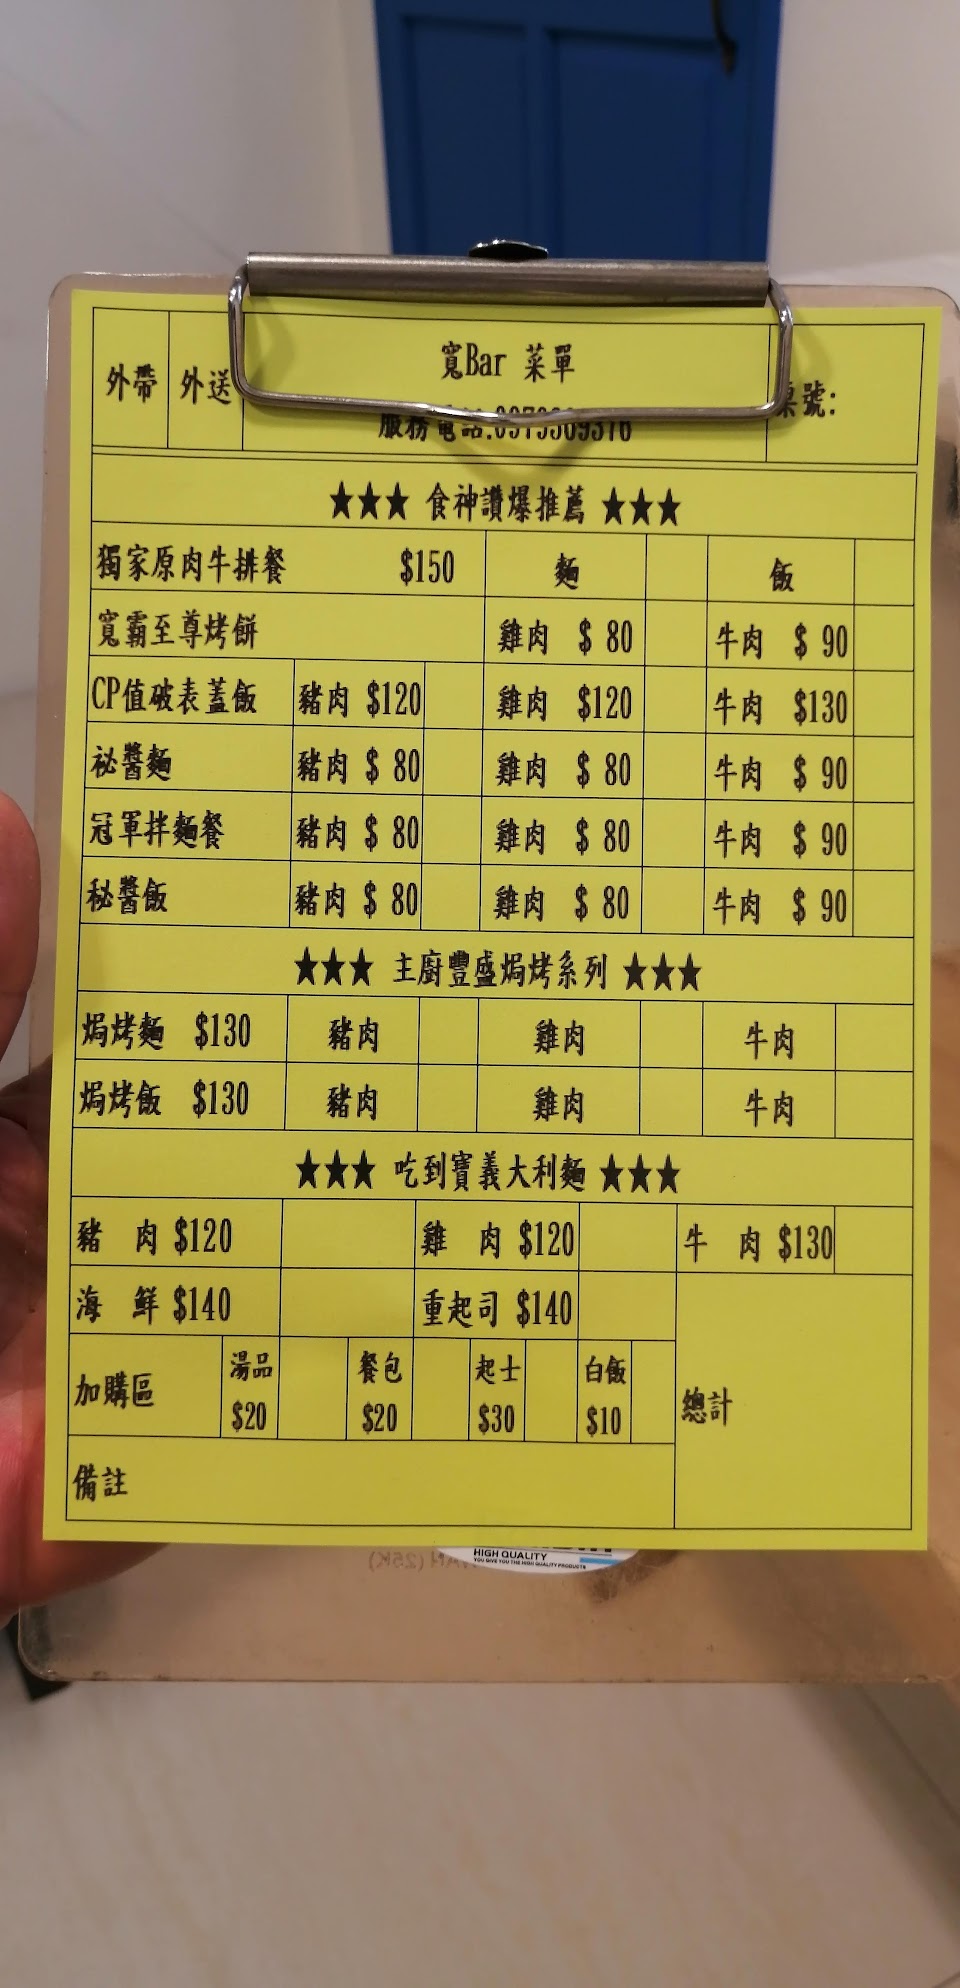 寬Bar 菜單
外帶 外送 號:
服務電話:
★★★ 食神讚爆推薦 ★★★
獨家原肉牛排餐 $150 麵 飯
寬霸至尊烤餅 雞肉 $ 80 牛肉 $ 90
CP值破表蓋飯 豬肉 $120 雞肉 $120 牛肉 $130
祕醬麵 豬肉 $ 80 雞肉 $ 80 牛肉 $ 90
冠軍拌麵餐 豬肉 $ 80 雞肉 $ 80 牛肉 $ 90
秘醬飯 豬肉 $ 80 雞肉 $ 80 牛肉 $ 90
★★★ 主廚豐盛焗烤系列 ★★★
焗烤麵 $130 豬肉 雞肉 牛肉
焗烤飯 $130 豬肉 雞肉 牛肉
★★★ 吃到寶義大利麵 ★★★
豬 肉 $120 雞 肉 $120 牛 肉 $130
海 鮮 $140 重起司 $140
加購區 湯品 $20 餐包 $20 起士 $30 白飯 $10 總計
備註
HIGH QUALITY
YOU GIVE YOU THE HIGH QUALITY PRODUCTS